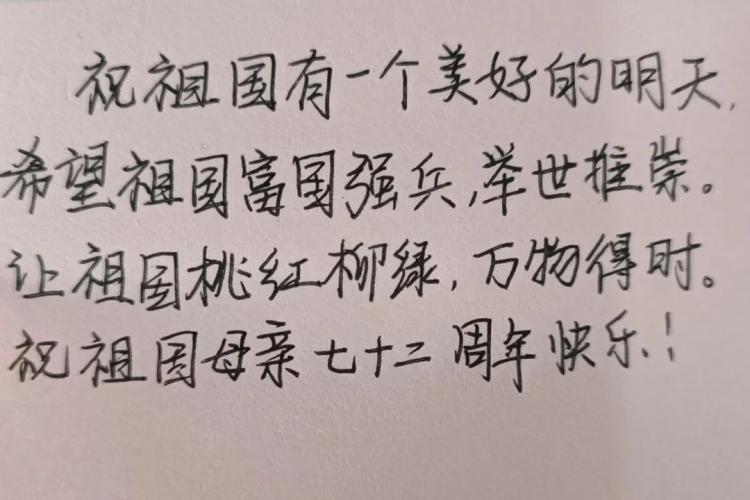 祝祖国有一个美好的明天,
希望祖国富国强兵,举世推崇。
让祖国桃红柳绿,万物得时。
祝祖国母亲七十二周年快乐!